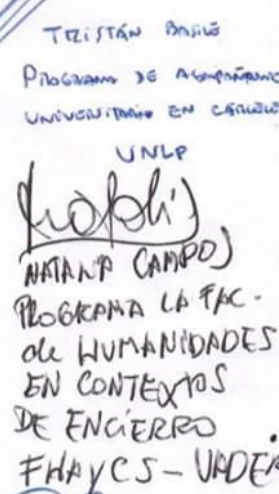 TRISTÁN BASILE
PROGRAMA DE ACOMPAÑAMIENTO
UNIVERSITARIO EN CÁRCELES
UNLP
NATANA CAMPOS
PROGRAMA LA FAC.
de HUMANIDADES
EN CONTEXTOS
DE ENCIERRO
FHAyCS - UADER